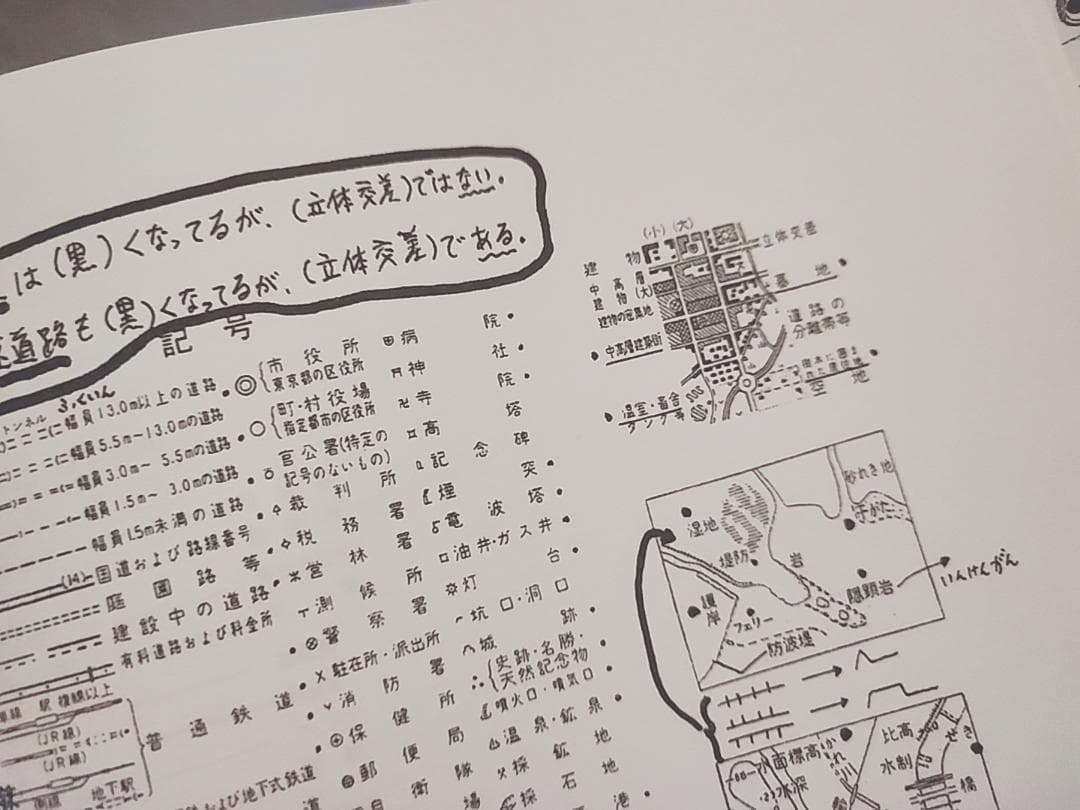 は(黒)くなってるが、(立体交差)ではない。
道路も(黒)くなってるが、(立体交差)である。
記号
トンネル ふくいん
幅員13.0m以上の道路
幅員5.5m〜13.0mの道路
幅員3.0m〜5.5mの道路
幅員1.5m〜3.0mの道路
幅員1.5m未満の道路
(14) 国道および路線番号
庭園路等
建設中の道路
有料道路および料金所
単線 駅 複線以上
(JR線)
(JR線)
側線 地下駅
普通鉄道
および地下式鉄道
市役所
東京都の区役所
町・村役場
指定都市の区役所
官公署(特定の
記号のないもの)
裁判所
税務署
営林署
測候所
警察署
駐在所・派出所
消防署
保健所
郵便局
自衛隊
病院
神社
寺院
高塔
記念碑
煙突
電波塔
油井・ガス井
灯台
坑口・洞口
城跡
史跡・名勝・
天然記念物
噴火口・噴気口
温泉・鉱泉
採鉱地
採石地
港
(小) (大)
建物
中高層
建物(大)
建物の密集地
中高層建築街
温室・畜舎
タンク等
立体交差
墓地
道路の
分離帯等
空地
砂れき地
湿地
干がた
堤防
岩
隠顕岩
いんけんがん
護岸
フェリー
防波堤
水面標高
水深
かれ川
比高
水制
せき
橋